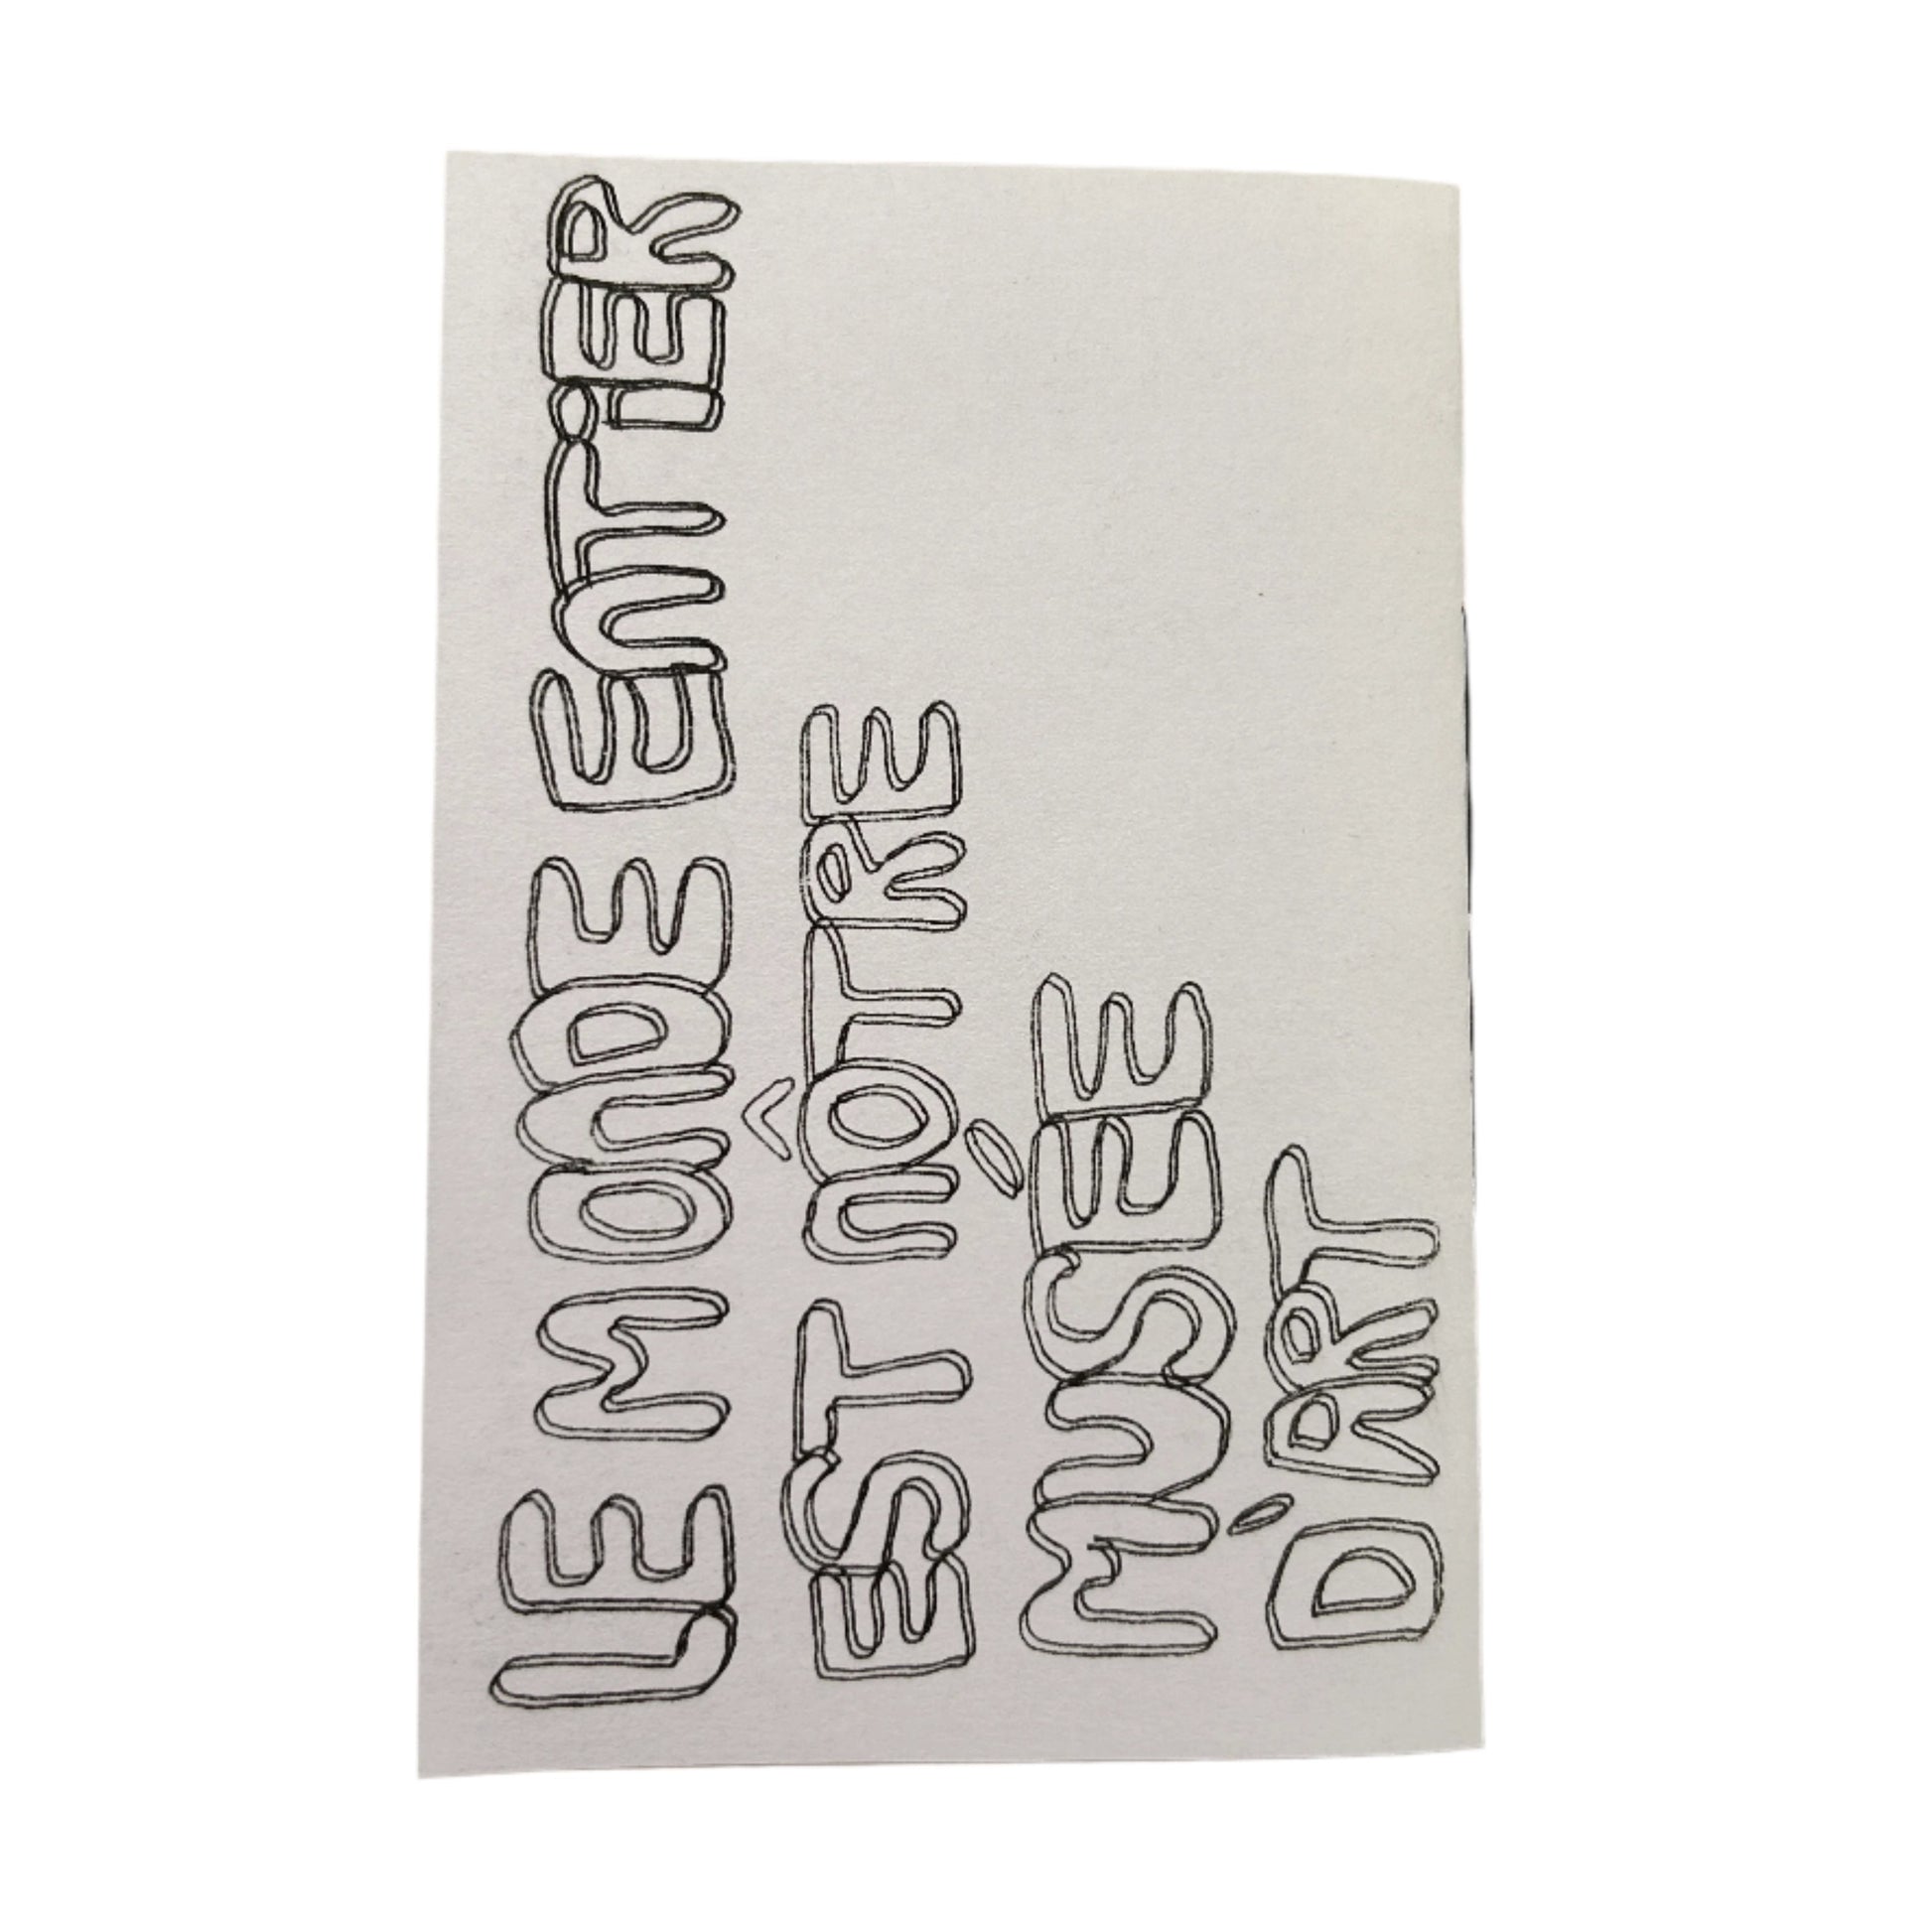 LE MONDE ENTiER
EST NÔTRE
MUSÉE
D'ART